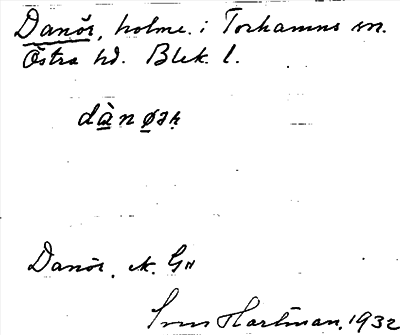 Danör, holme i Torhamns sn.
Östra hd. Blek. l.
dànøəṛ
Danör, ek. G
Sven Hartman, 1932